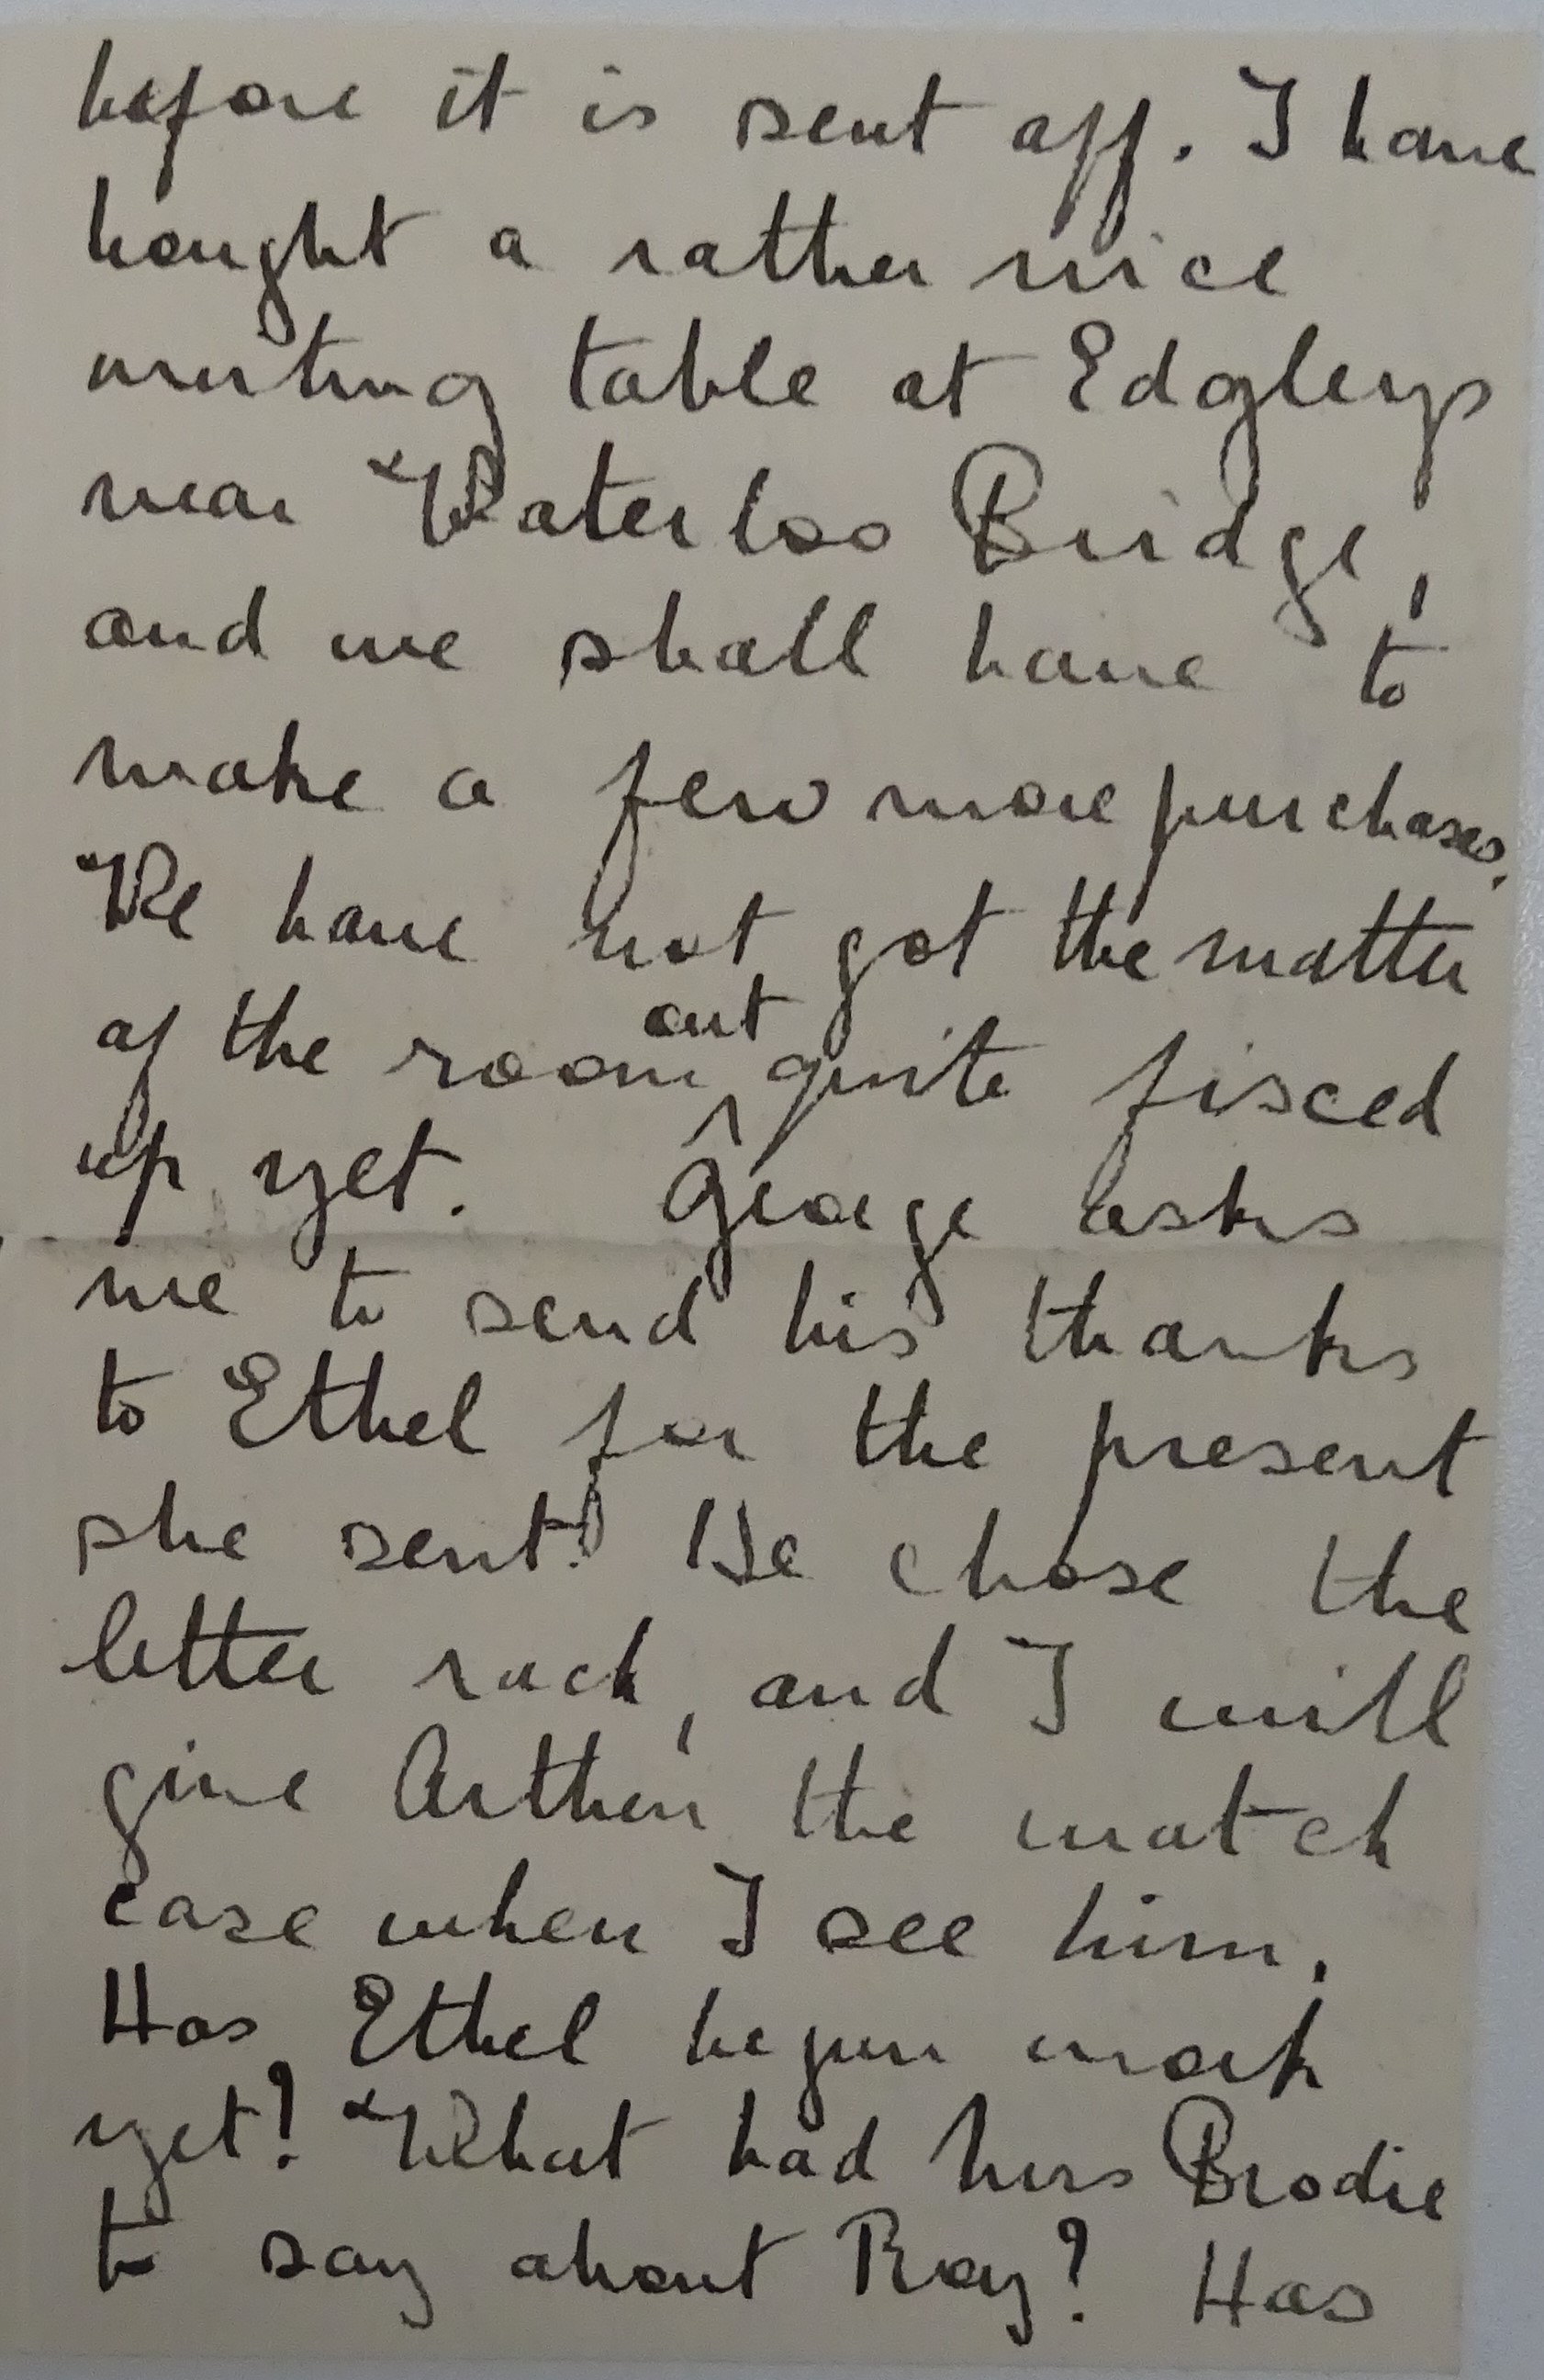 before it is sent off. I have
bought a rather nice
writing table at Edgleys
near Waterloo Bridge,
and we shall have to
make a few more purchases.
We have not got the matter
out
of the room ^ quite fixed
up yet. George asks
me to send his thanks
to Ethel for the present
she sent. He chose the
letter rack, and I will
give Arthur the match
case when I see him.
Has Ethel begun work
yet? What had Mrs Brodie
to say about Ray? Has